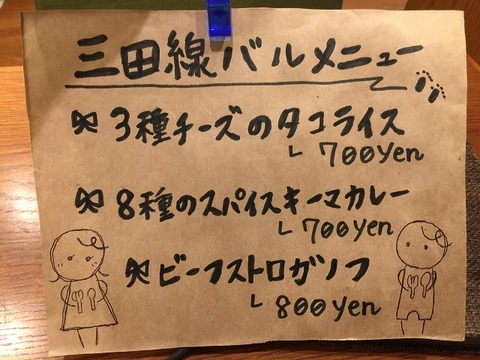 三田線バルメニュー
3種チーズのタコライス
700yen
8種のスパイスキーマカレー
700yen
ビーフストロガノフ
800yen